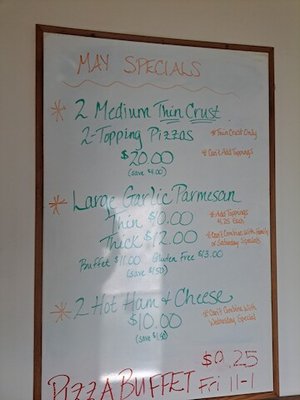 MAY SPECIALS
* 2 Medium Thin Crust
2-Topping Pizzas
$20.00
(save $4.00)
* Thin Crust Only
* Can't Add Toppings
* Large Garlic Parmesan
Thin $10.00
Thick $12.00
Buffet $11.00 Gluten Free $13.00
(save $1.50)
* Add Toppings
$1.25 Each
* Can't Combine With Family
or Saturday Specials
* 2 Hot Ham & Cheese
$10.00
(save $1.90)
* Can't Combine With
Wednesday Special
$0.25
PIZZA BUFFET Fri 11-1